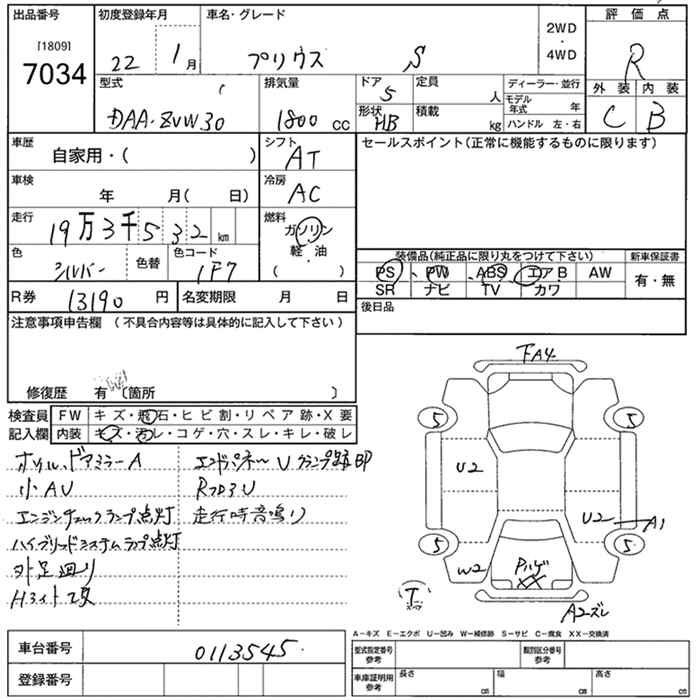 出品番号 初度登録年月 車名・グレード 2WD・4WD 評価点
[1809]
7034 22 1月 プリウス S R
型式 排気量 ドア 5 定員 人 ディーラー・並行 外装 内装
DAA-ZVW30 1800 CC 形状 HB 積載 kg モデル年式 年 C B
ハンドル 左・右
車歴 自家用・( ) シフト AT セールスポイント(正常に機能するものに限ります)
車検 年 月( 日) 冷房 AC
走行 19万3千532km 燃料 ガソリン
軽・油
( )
色 シルバー 色替 色コード 1F7
装備品(純正品に限り丸をつけて下さい) 新車保証書
PS PW ABS エアB AW 有・無
SR ナビ TV カワ
R券 13190円 名変期限 月 日 後日品
注意事項申告欄 (不具合内容等は具体的に記入して下さい)
修復歴 有 〔箇所 〕
検査員 FW キズ・飛石・ヒビ割・リペア跡・X要
記入欄 内装 キズ・汚レ・コゲ・穴・スレ・キレ・破レ
ドアミラーA エンドパネルU クランプ跡
小AU
エンジンチェックランプ点灯 走行時音鳴り
ハイブリッドシステムランプ点灯
外足廻り
FA4
5 5
U2
U2 A1
5 5
W2
XX
T
A2ズレ
A−キズ E−エクボ U−凹み W−補修跡 S−サビ C−腐食 XX−交換済
車台番号 0113545
登録番号
型式指定番号 参考 類別区分番号 参考
車庫証明用 参考 長さ cm 幅 cm 高さ cm